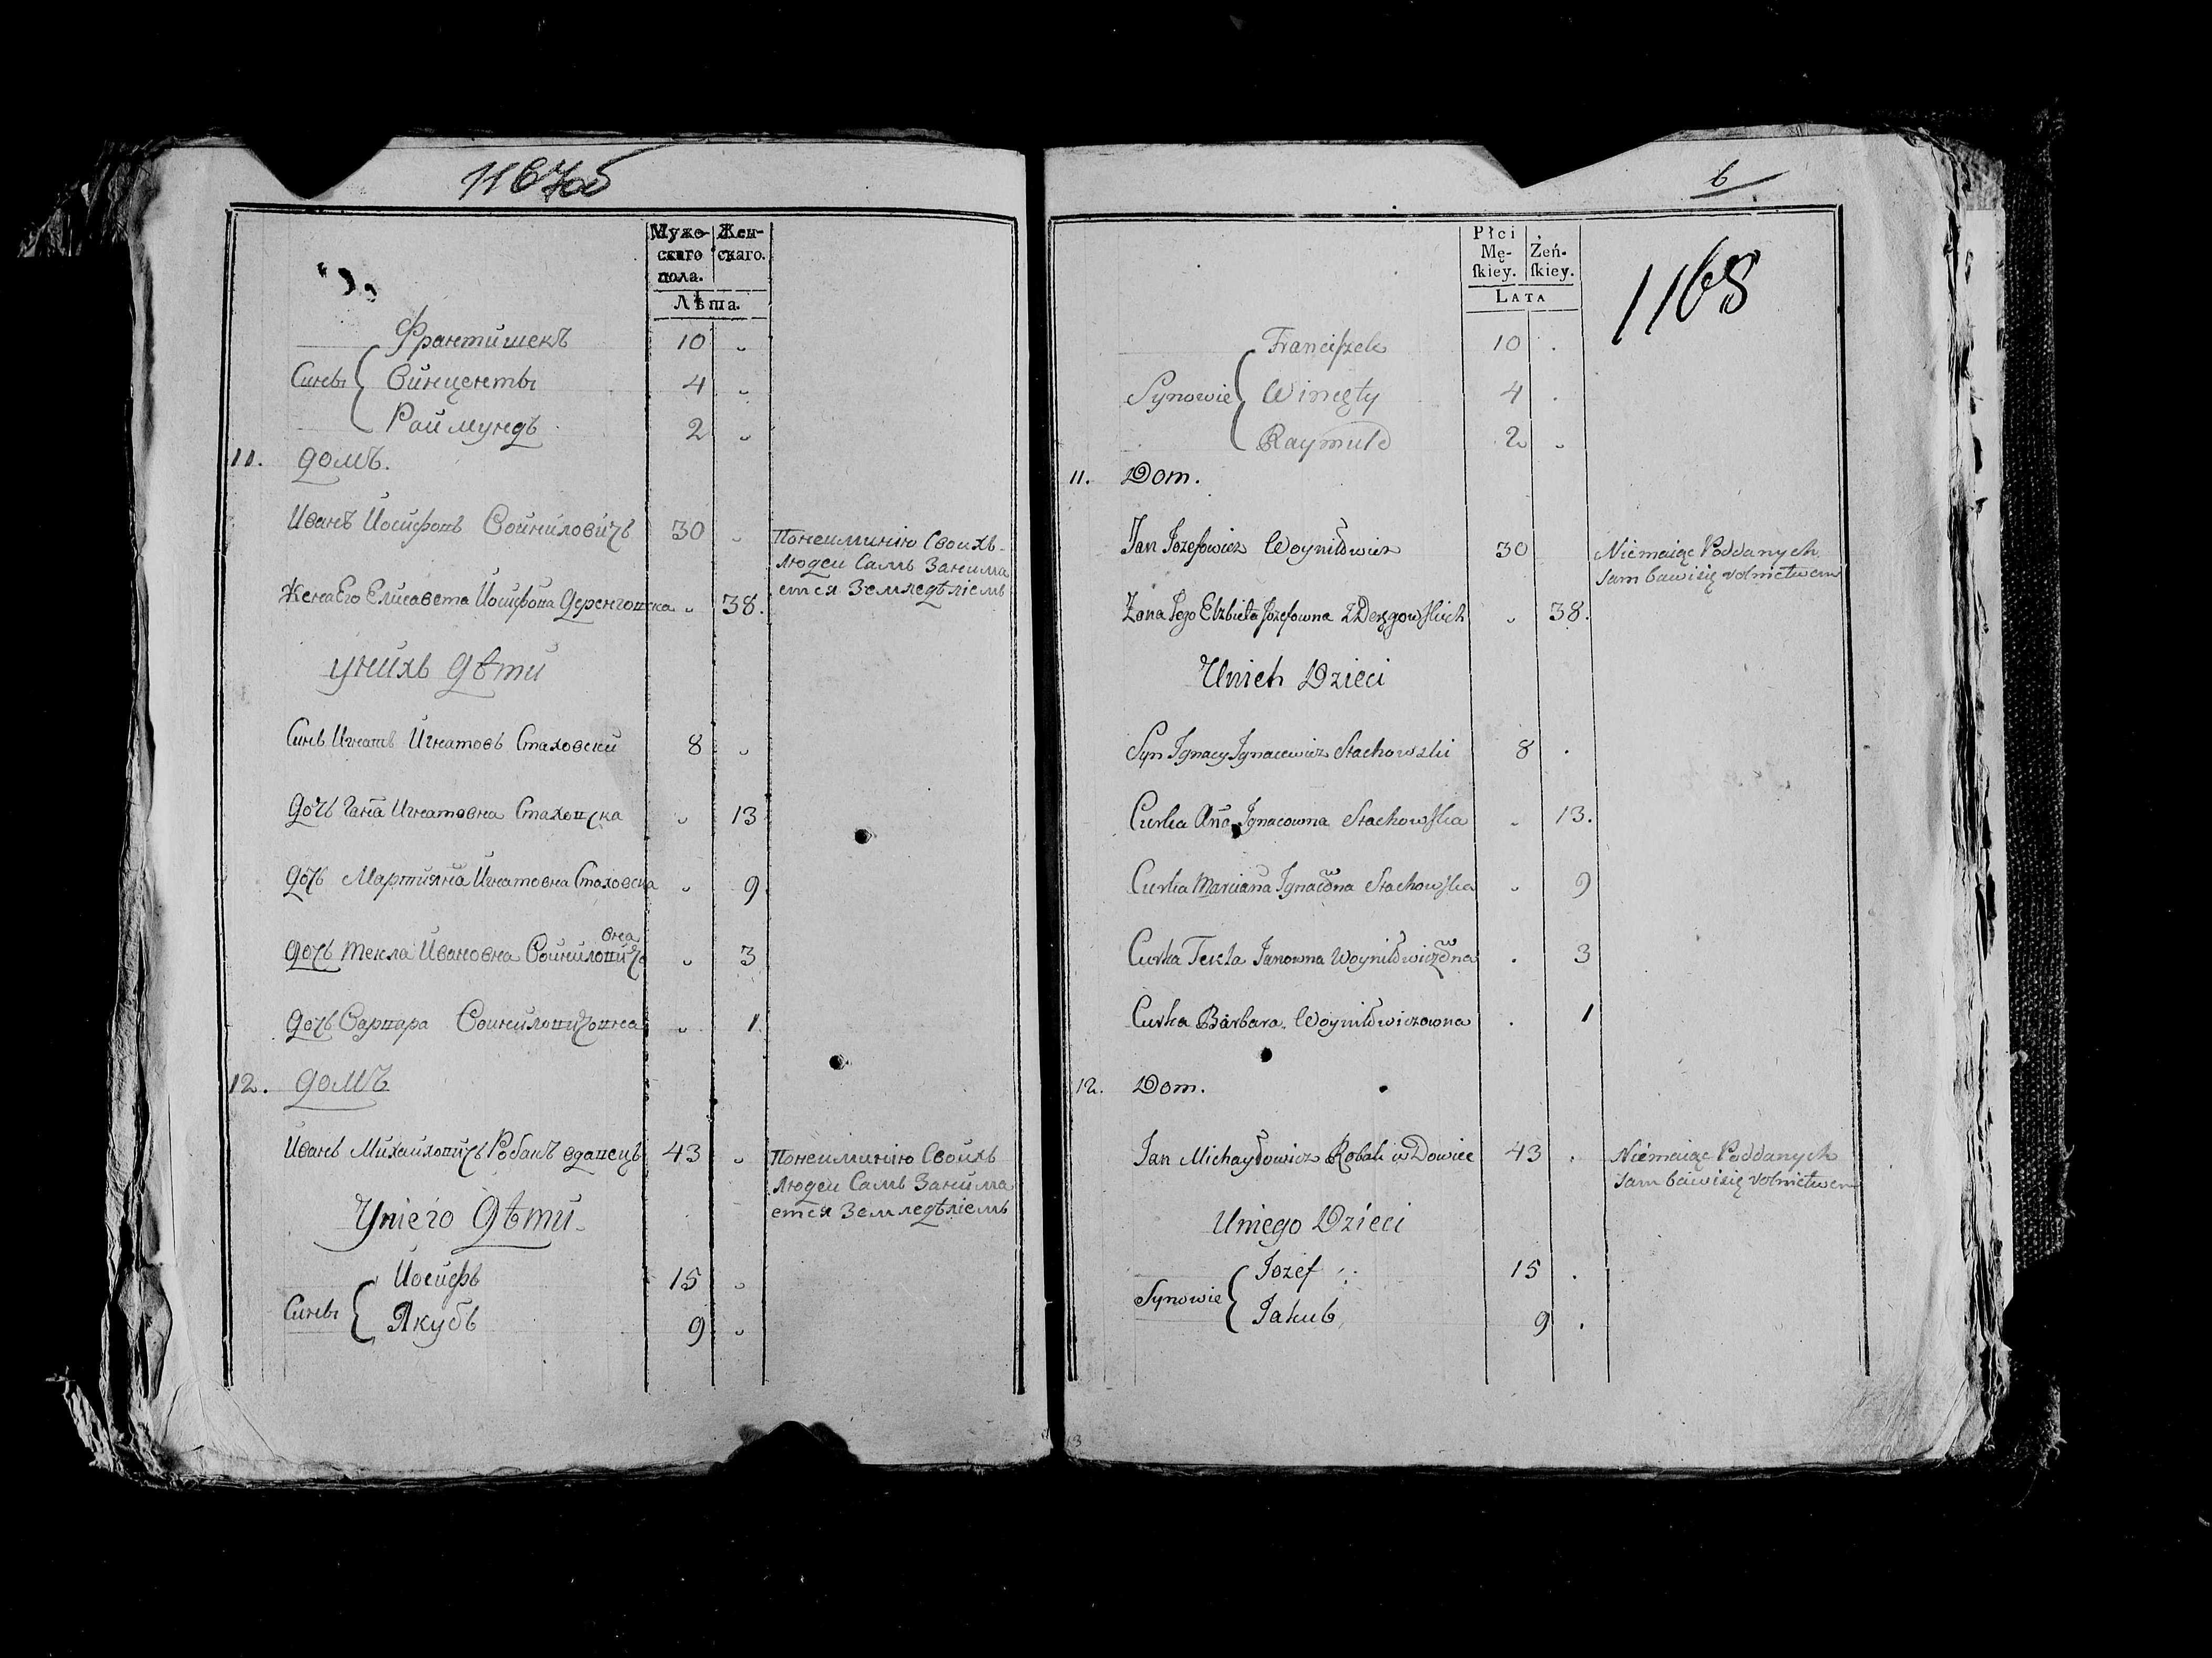 1167об
Мужескаго пола. Женскаго.
Лѣта.
Франтишекъ 10
Сины Винценты 4
Раймундъ 2
11. домъ.
Иванъ Иосифовъ Войниловичъ 30
Понеиминію Своихъ
людеи Самъ Занима
ется Земледѣліемъ
Жена Его Елисавета Иосифова 38.
унихъ дѣти
Синъ Игнатъ Игнатовъ Стаховски 8
дочъ Ганна Игнатовна Стаховска 13
дочъ Мартиянна Игнатовна Стаховска 9
вна
дочъ текла Ивановна Войниловичо 3
дочъ Варвара Войниловичовна 1
12. домъ
Иванъ Михаиловичъ Робакъ вдовецъ 43
Понеиминію Своихъ
людеи Самъ Занима
ется Земледѣліемъ
Униего дѣти
Иосифъ 15
Сины
Якубъ 9
6
1168
Płci Mę-ſkiey. Żeń-ſkiey.
LATA
Franciſzek 10
Synowie Wincęty 4
Raymuld 2
11. Dom.
Jan Jozefowicz Woyniłowicz 30
Niemaiąc Poddanych
sam bawi się rolnictwem
Zona Jego Elzbieta Jozefowna 38.
Unich Dzieci
Syn Ignacy Ignacewicz Stachowski 8
Curka Anna Ignacowna Stachowſka 13.
Curka Marcianna Ignacowna Stachowſka 9
Curka Tekla Janowna Woyniłowiczowna 3
Curka Barbara Woyniłowiczowna 1
12. Dom.
Jan Michayłowicz Robak wDowiec 43
Niemaiąc Poddanych
sam bawi się rolnictwem
Uniego Dzieci
Jozef 15
Synowie
Jakub 9